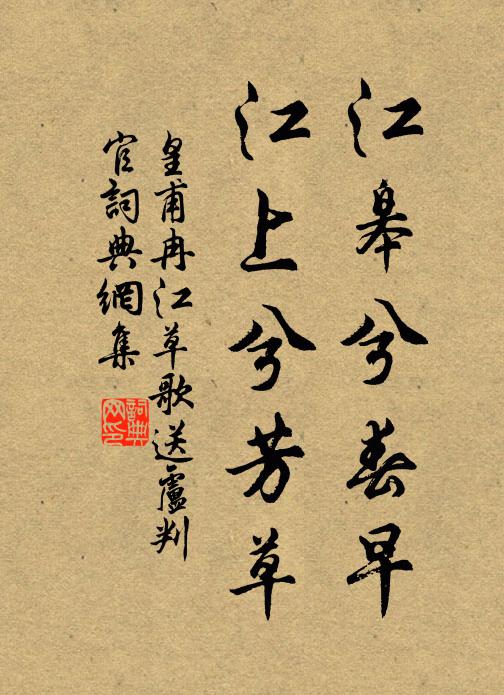 江皋兮春早
江上兮芳草
皇甫冉江草歌送盧判
官詞典網集
詞典
网印